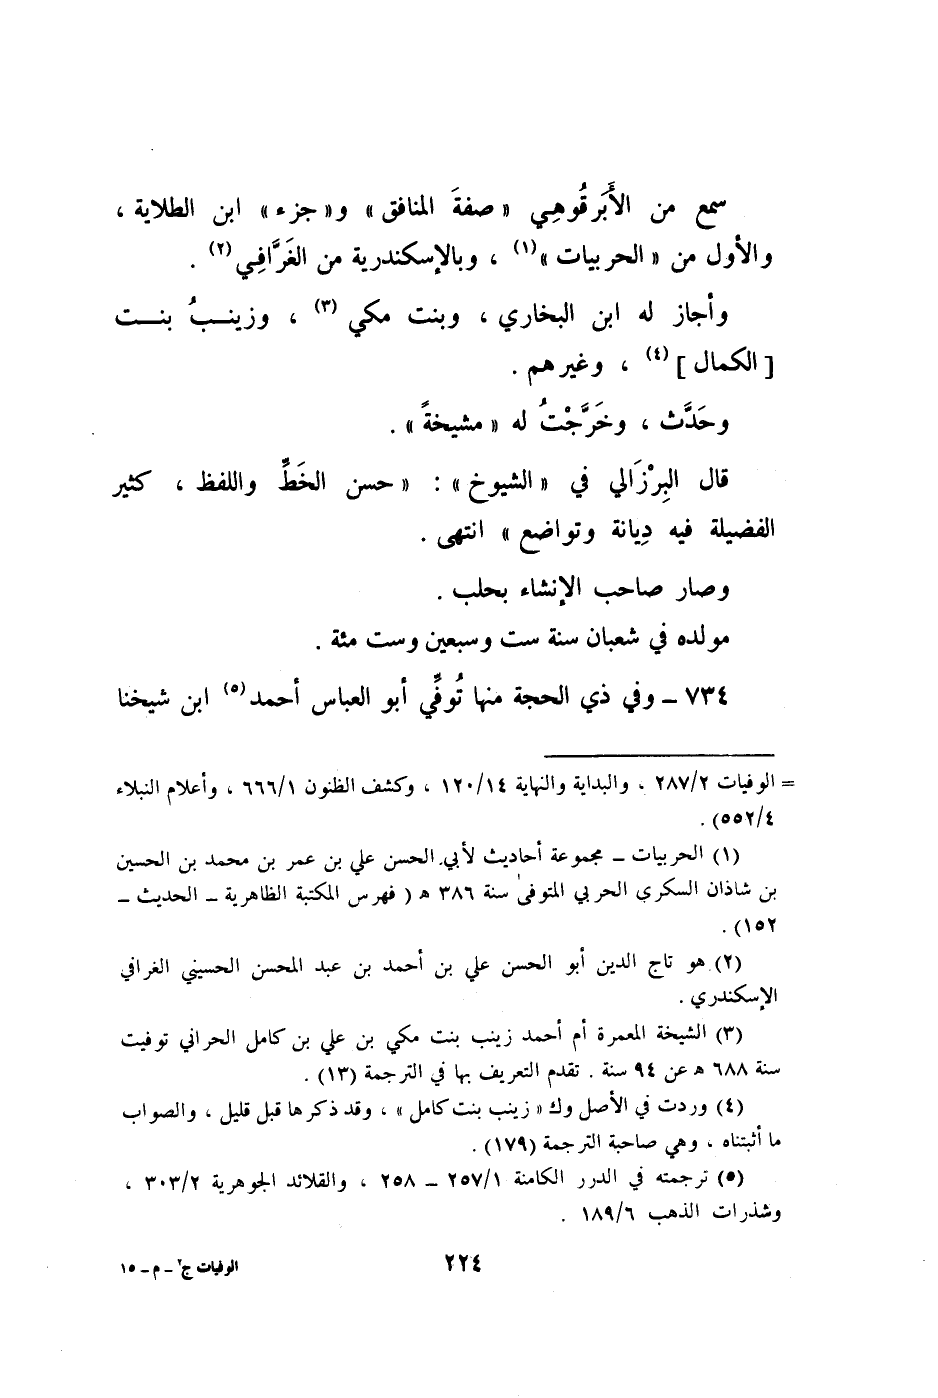 سمع من الأَبَرقُوهِي « صفةَ المنافق » و« جزء » ابن الطلاية ،
والأول من « الحربيات »(١) ، وبالإسكندرية من الغَرَّافِي(٢) .
وأجاز له ابن البخاري ، وبنت مكي (٣) ، وزينبُ بنت
[ الكمال ] (٤) ، وغيرهم .
وحَدَّث ، وخَرَّجْتُ له « مشيخةً » .
قال البِرْزَالي في « الشيوخ » : « حسن الخَطِّ واللفظ ، كثير
الفضيلة فيه دِيانة وتواضع » انتهى .
وصار صاحب الإنشاء بحلب .
مولده في شعبان سنة ست وسبعين وست مئة .
٧٣٤ ــ وفي ذي الحجة منها تُوفِّي أبو العباس أحمد(٥) ابن شيخنا
= الوفيات ٢٨٧/٢ ، والبداية والنهاية ١٢٠/١٤ ، وكشف الظنون ٦٦٦/١ ، وأعلام النبلاء
٥٥٢/٤) .
(١) الحربيات ــ مجموعة أحاديث لأبي الحسن علي بن عمر بن محمد بن الحسين
بن شاذان السكري الحربي المتوفى سنة ٣٨٦ ه ( فهرس المكتبة الظاهرية ــ الحديث ــ
١٥٢) .
(٢) هو تاج الدين أبو الحسن علي بن أحمد بن عبد المحسن الحسيني الغرافي
الإسكندري .
(٣) الشيخة المعمرة أم أحمد زينب بنت مكي بن علي بن كامل الحراني توفيت
سنة ٦٨٨ ه عن ٩٤ سنة . تقدم التعريف بها في الترجمة (١٣) .
(٤) وردت في الأصل وك « زينب بنت كامل » ، وقد ذكرها قبل قليل ، والصواب
ما أثبتناه ، وهي صاحبة الترجمة (١٧٩) .
(٥) ترجمته في الدرر الكامنة ٢٥٧/١ ــ ٢٥٨ ، والقلائد الجوهرية ٣٠٣/٢ ،
وشذرات الذهب ١٨٩/٦ .
٢٢٤
الوفيات ج٢ ــ م ــ ١٥